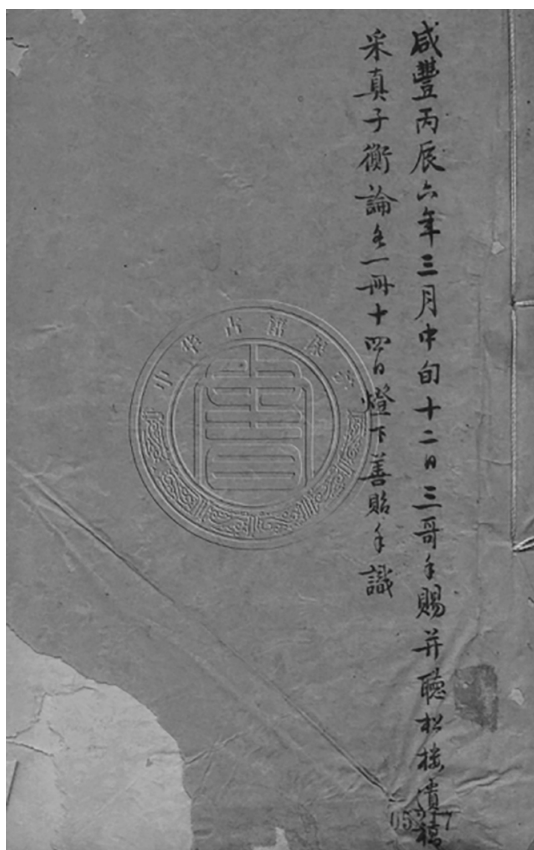 咸豐丙辰六年三月中旬十二日三哥手賜并聽松樓遺稿
采真子衡論各一冊十四日燈下善貽手識
中华古籍保